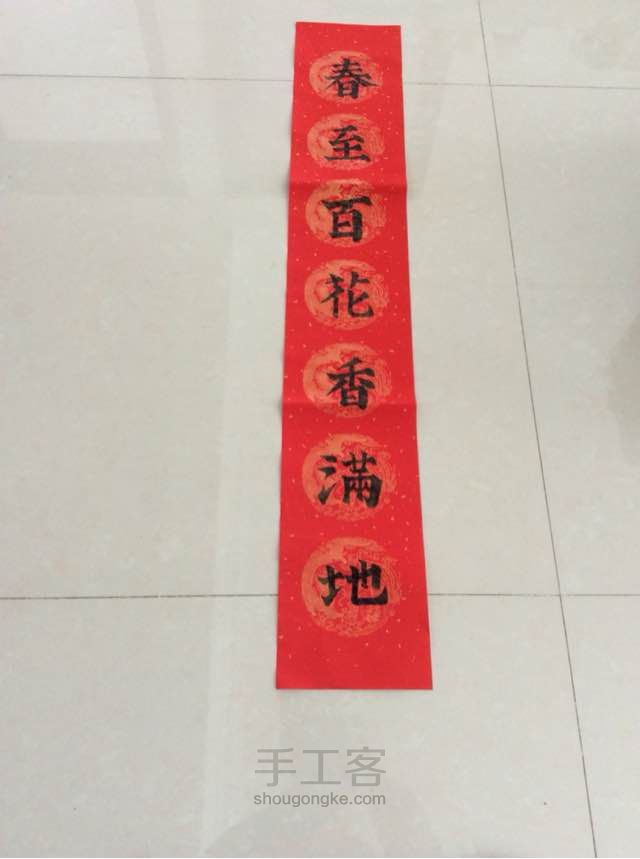 春至百花香滿地
手工客
shougongke.com